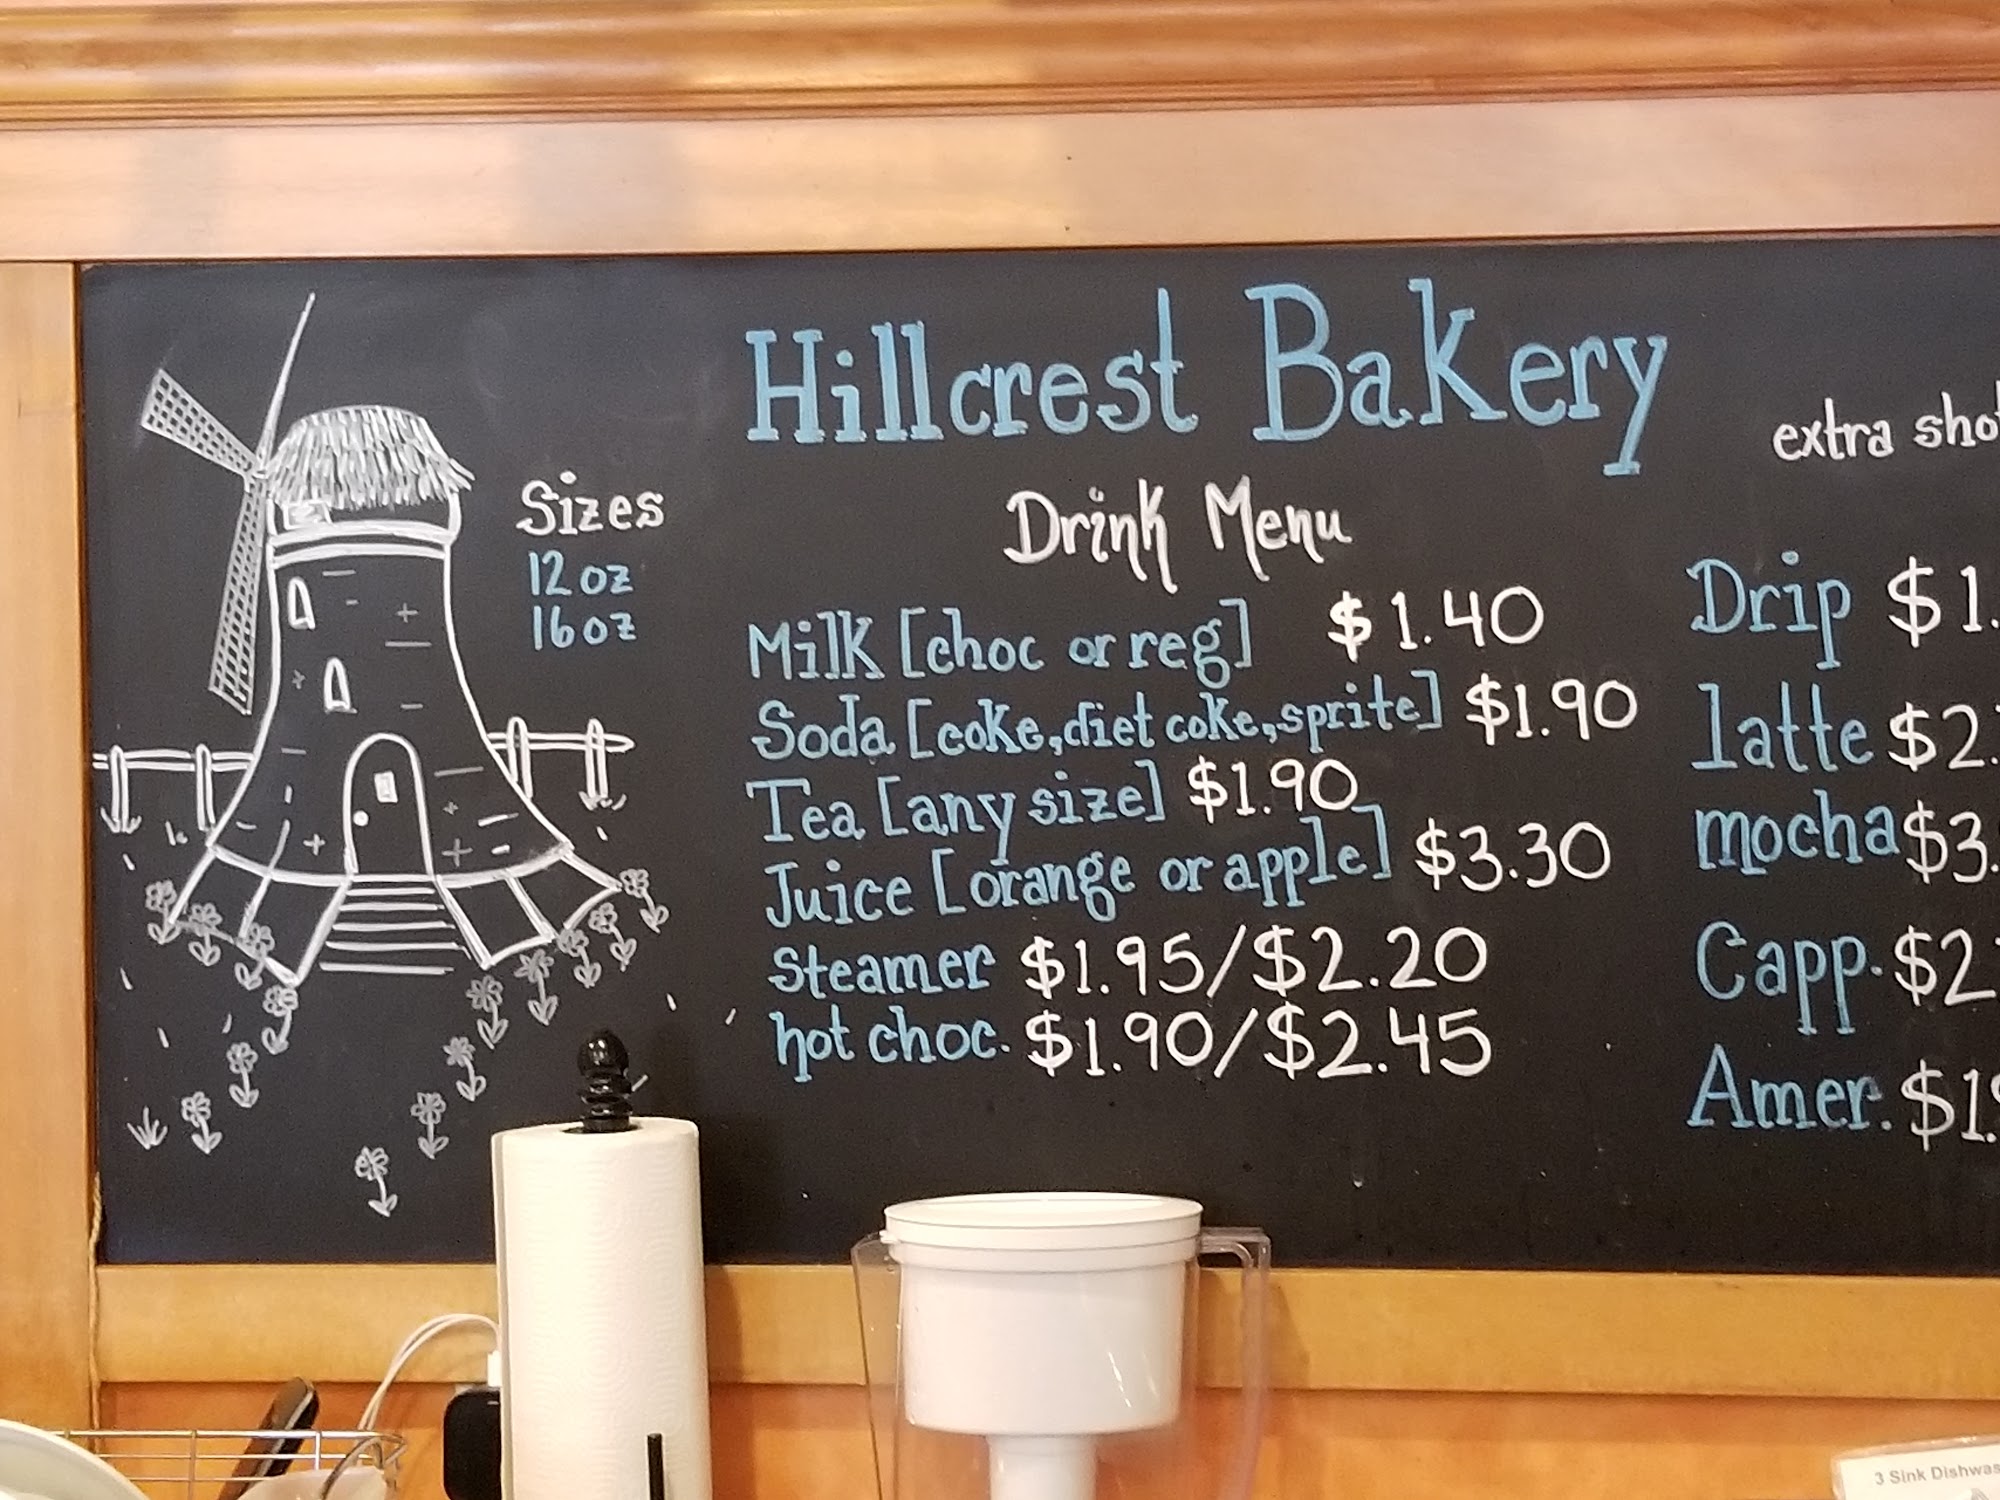 Hillcrest Bakery
Sizes
12oz
16oz
Drink Menu
Milk [choc or reg] $1.40
Soda [coke, diet coke, sprite] $1.90
Tea [any size] $1.90
Juice [orange or apple] $3.30
Steamer $1.95/$2.20
hot choc. $1.90/$2.45
extra
Drip $1.
latte $2.
mocha $3.
Capp. $2
Amer. $1
3 Sink